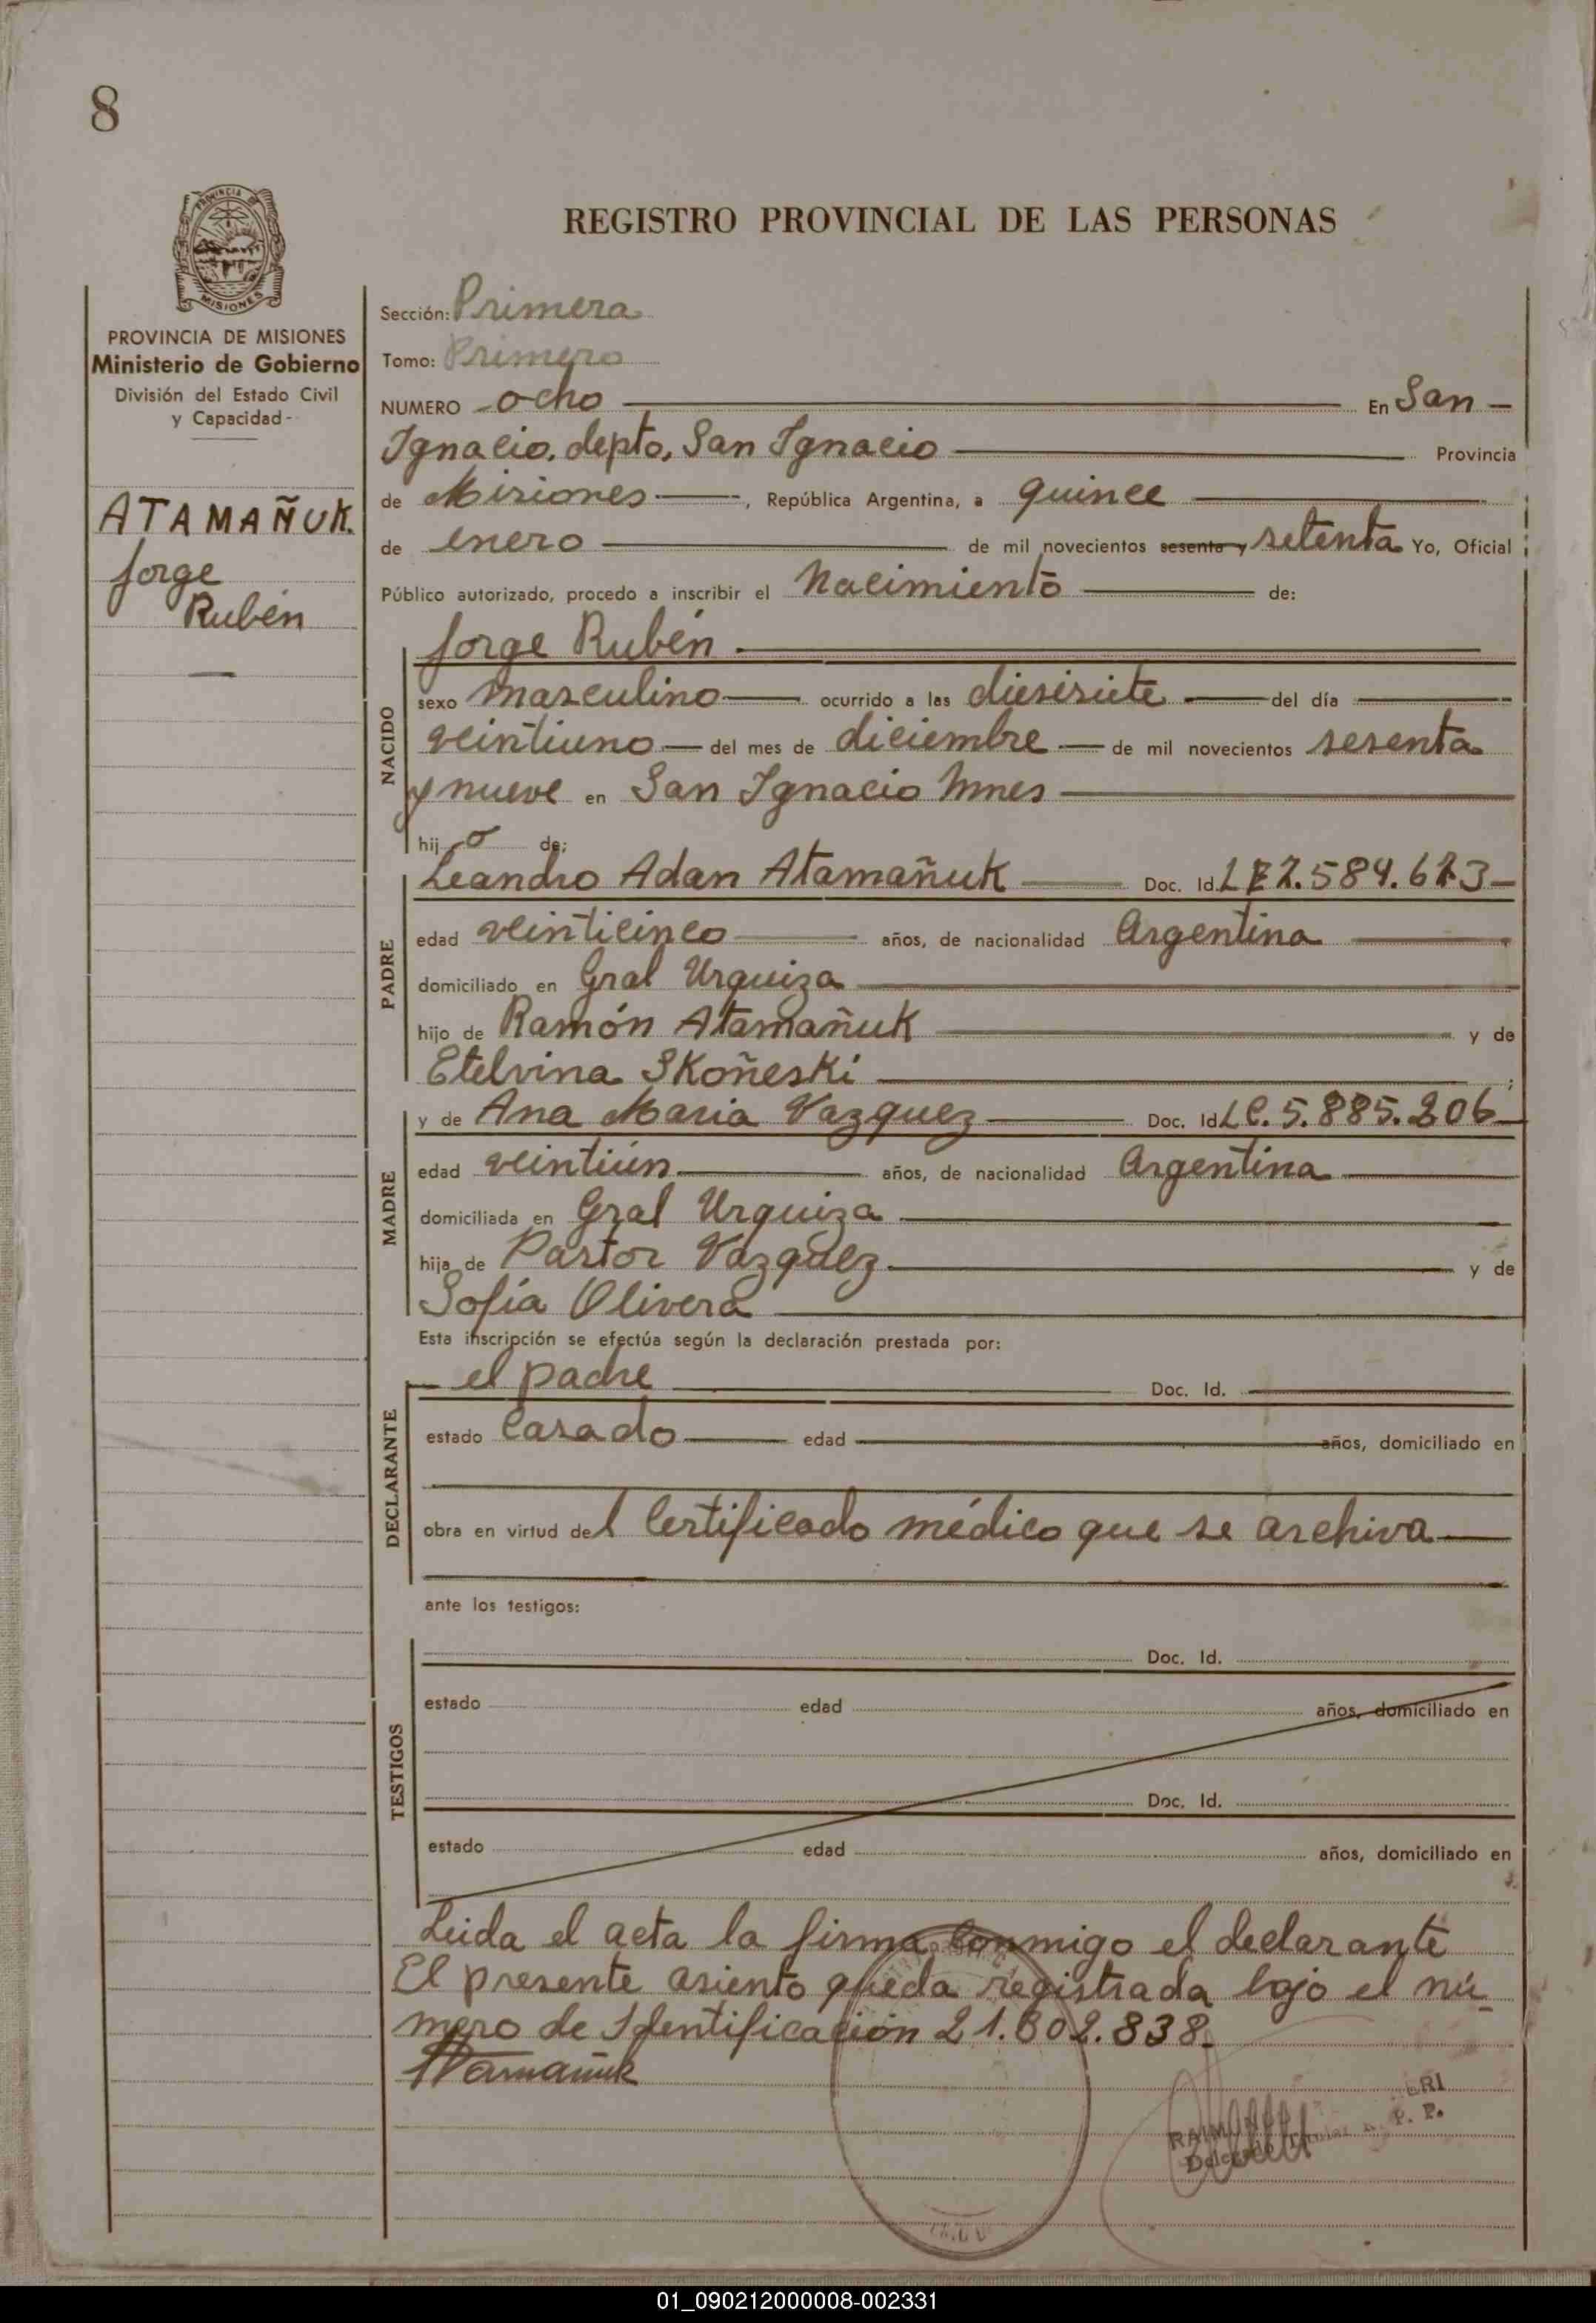 8
PROVINCIA
MISIONES
REGISTRO PROVINCIAL DE LAS PERSONAS
PROVINCIA DE MISIONES
Ministerio de Gobierno
División del Estado Civil
y Capacidad-
ATAMAÑUK.
Jorge
Rubén
Sección: Primera
Tomo: Primero
NUMERO ocho En San
Ignacio, depto, San Ignacio Provincia
de Misiones, República Argentina, a quince
de enero de mil novecientos sesenta y setenta Yo, Oficial
Público autorizado, procedo a inscribir el Nacimiento de:
NACIDO
Jorge Rubén.
sexo masculino ocurrido a las diesisiete del día
veintiuno del mes de diciembre de mil novecientos sesenta
y nueve en San Ignacio Mnes
hijo de:
PADRE
Leandro Adan Atamañuk Doc. Id.
edad veinticinco años, de nacionalidad Argentina
domiciliado en Gral Urquiza
hijo de Ramón Atamañuk y de
Etelvina Skoñeski ;
MADRE
y de Ana Maria Vazquez Doc. Id. LC. 5.885.206
edad veintiún años, de nacionalidad Argentina
domiciliada en Gral Urquiza
hija de Pastor Vazquez y de
Sofía Olivera
Esta inscripción se efectúa según la declaración prestada por:
DECLARANTE
el padre Doc. Id.
estado Casado edad años, domiciliado en
obra en virtud del Certificado médico que se archiva
ante los testigos:
TESTIGOS
Doc. Id.
estado edad años, domiciliado en
Doc. Id.
estado edad años, domiciliado en
Leida el acta la firma conmigo el declarante
El presente asiento queda registrada bajo el nú-
mero de Identificación 21.802.838.
Atamañuk
RAIMUNDO ERI
Delegado Titular R. P. P.
01_090212000008-002331